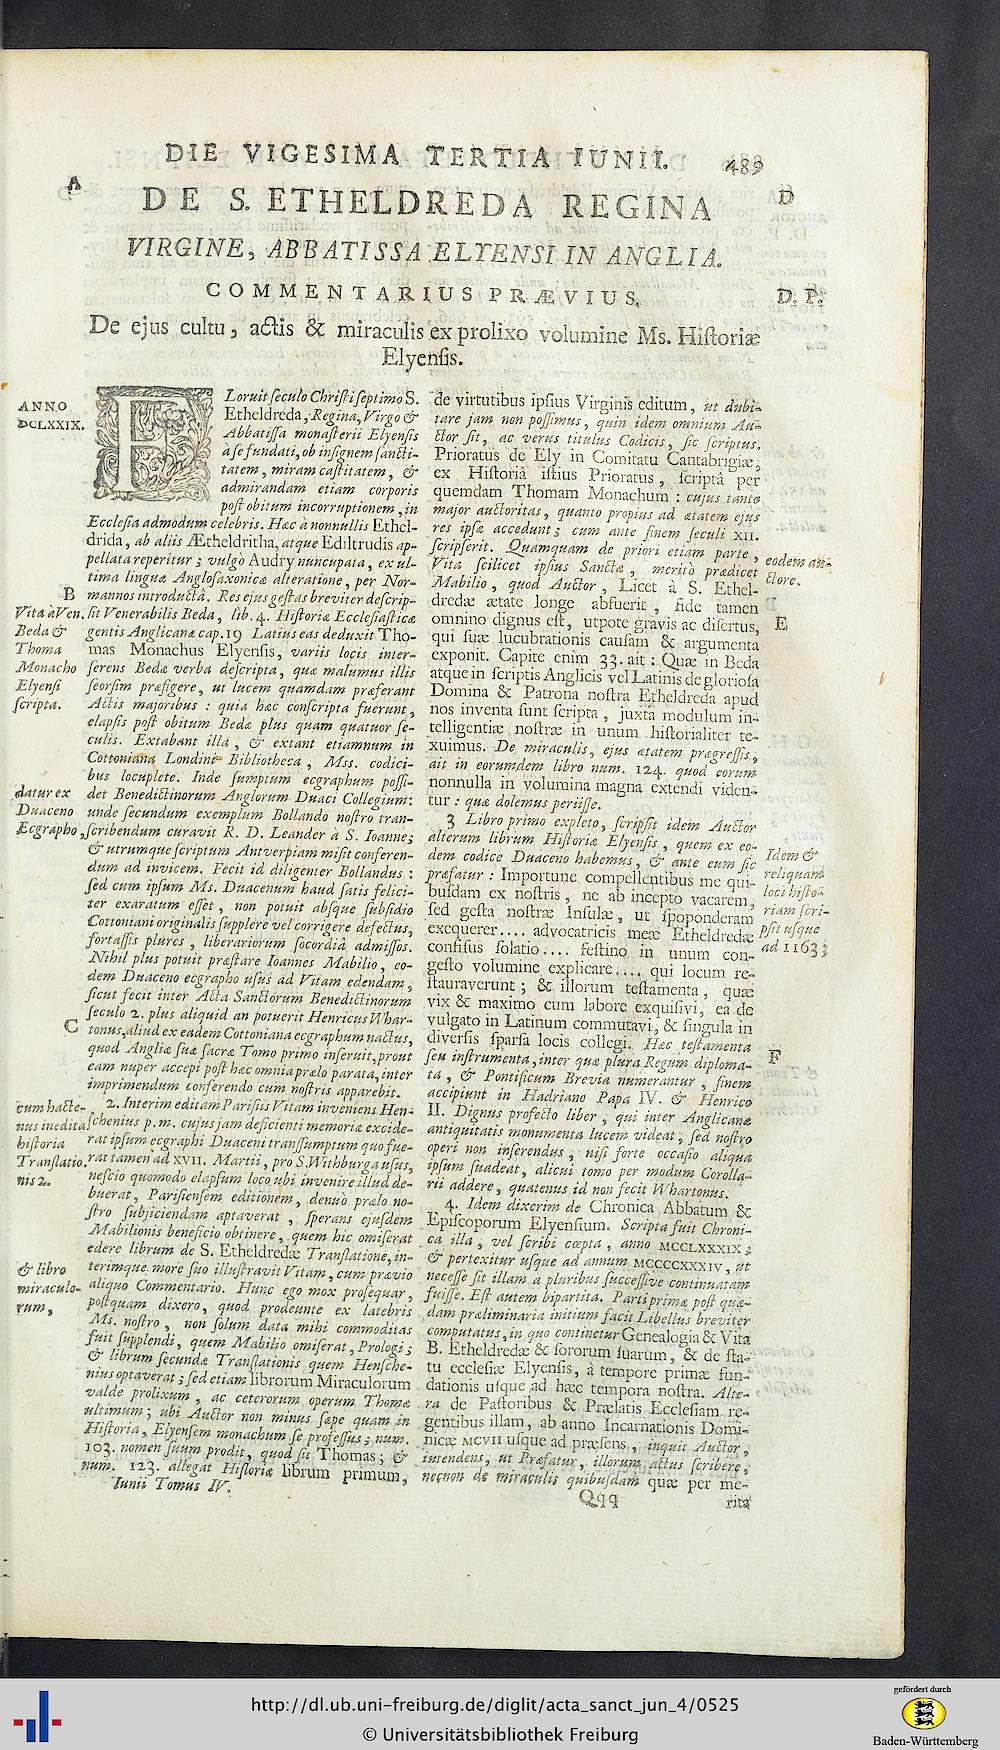 DIE VIGESIMA TERTIA IUNII. 489
A
D
DE S. ETHELDREDA REGINA
VIRGINE, ABBATISSA ELYENSI IN ANGLIA.
COMMENTARIUS PRÆVIUS,
D. P.
De ejus cultu, actis & miraculis ex prolixo volumine Ms. Historiæ
Elyensis.
ANNO
DCLXXIX.
FLoruit seculo Christi septimo S.
Etheldreda, Regina, Virgo &
Abbatissa monasterii Elyensis
à se fundati, ob insignem sancti-
tatem, miram castitatem, &
admirandam etiam corporis
post obitum incorruptionem, in
Ecclesia admodum celebris. Hæc à nonnullis Ethel-
drida, ab aliis Ætheldritha, atque Ediltrudis ap-
pellata reperitur; vulgò Audry nuncupata, ex ul-
tima linguæ Anglosaxonicæ alteratione, per Nor-
B
mannos introductâ. Res ejus gestas breviter descrip-
Vita à Ven.
Beda &
Thoma
Monacho
Elyensi
scripta.
sit Venerabilis Beda, lib. 4. Historiæ Ecclesiasticæ
gentis Anglicanæ cap. 19 Latius eas deduxit Tho-
mas Monachus Elyensis, variis locis inter-
serens Bedæ verba descripta, quæ malumus illis
seorsim præfigere, ut lucem quamdam præferant
Actis majoribus: quia hæc conscripta fuerunt,
elapsis post obitum Bedæ plus quam quatuor se-
culis. Extabant illa, & extant etiamnum in
Cottoniana Londini Bibliotheca, Mss. codici-
bus locuplete. Inde sumptum ecgraphum possi-
datur ex
Duaceno
Ecgrapho,
det Benedictinorum Anglorum Duaci Collegium:
unde secundum exemplum Bollando nostro tran-
scribendum curavit R. D. Leander à S. Ioanne;
& utrumque scriptum Antverpiam misit conferen-
dum ad invicem. Fecit id diligenter Bollandus:
sed cum ipsum Ms. Duacenum haud satis felici-
ter exaratum esset, non potuit absque subsidio
Cottoniani originalis supplere vel corrigere defectus,
fortassis plures, liberariorum socordiâ admissos.
Nihil plus potuit præstare Ioannes Mabilio, eo-
dem Duaceno ecgrapho usus ad Vitam edendam,
sicut fecit inter Acta Sanctorum Benedictinorum
seculo 2. plus aliquid an potuerit Henricus Whar-
C
tonus, aliud ex eadem Cottoniana ecgraphum nactus,
quod Angliæ suæ sacræ Tomo primo inseruit, prout
eam nuper accepi post hæc omnia prælo parata, inter
imprimendum conferendo cum nostris apparebit.
cum hacte-
nus inedita
historia
Translatio-
nis 2.
2. Interim editam Parisiis Vitam inveniens Hen-
schenius p. m. cujus jam deficienti memoriæ excide-
rat ipsum ecgraphi Duaceni transsumptum quo fue-
rat tamen ad XVII. Martii, pro S. Withburga usus,
nescio quomodo elapsum loco, ubi invenire illud de-
buerat, Parisiensem editionem, denuò prælo no-
stro subjiciendam aptaverat, sperans ejusdem
Mabilionis beneficio obtinere, quem hic omiserat
edere librum de S. Etheldredæ Translatione, in-
& libro
miraculo-
rum,
terimque more suo illustravit Vitam, cum prævio
aliquo Commentario. Hunc ego mox prosequar,
postquam dixero, quod prodeunte ex latebris
Ms. nostro, non solum data mihi commoditas
fuit supplendi, quem Mabilio omiserat, Prologi;
& librum secundæ Translationis quem Hensche-
nius optaverat; sed etiam librorum Miraculorum
valde prolixum, ac ceterorum operum Thomæ
ultimum; ubi Auctor non minus sæpe quam in
Historia, Elyensem monachum se professus; num.
103. nomen suum prodit, quod sit Thomas; &
num. 123. allegat Historiæ librum primum,
Iunii Tomus IV.
de virtutibus ipsius Virginis editum, ut dubi-
tare jam non possimus, quin idem omnium Au-
ctor sit, ac verus titulus Codicis, sic scriptus,
Prioratus de Ely in Comitatu Cantabrigiæ,
ex Historiâ istius Prioratus, scriptâ per
quemdam Thomam Monachum: cujus tanto
major auctoritas, quanto propius ad ætatem ejus
res ipsæ accedunt; cum ante finem seculi XII.
scripserit. Quamquam de priori etiam parte,
eodem au-
ctore.
Vita scilicet ipsius Sanctæ, meritò prædicet
Mabilio, quod Auctor, Licet à S. Ethel-
dredæ ætate longe abfuerit, fide tamen
E
omnino dignus est, utpote gravis ac disertus,
qui suæ lucubrationis causam & argumenta
exponit. Capite enim 33. ait: Quæ in Beda
atque in scriptis Anglicis vel Latinis de gloriosa
Domina & Patrona nostra Etheldreda apud
nos inventa sunt scripta, juxta modulum in-
telligentiæ nostræ in unum historialiter te-
xuimus. De miraculis, ejus ætatem prægressis,
ait in eorumdem libro num. 124. quod eorum
nonnulla in volumina magna extendi viden-
tur: quæ dolemus periisse.
3 Libro primo expleto, scripsit idem Auctor
alterum librum Historiæ Elyensis, quem ex eo-
Idem &
reliquam
loci histo-
riam scri-
psit usque
ad 1163;
dem codice Duaceno habemus, & ante eum sic
præfatur: Importune compellentibus me qui-
busdam ex nostris, ne ab incepto vacarem,
sed gesta nostræ Insulæ, ut spoponderam
exequerer.... advocatricis meæ Etheldredæ
confisus solatio.... festino in unum con-
gesto volumine explicare.... qui locum re-
stauraverunt; & illorum testamenta, quæ
vix & maximo cum labore exquisivi, ea de
vulgato in Latinum commutavi, & singula in
diversis sparsa locis collegi. Hæc testamenta
F
seu instrumenta, inter quæ plura Regum diploma-
ta, & Pontificum Brevia numerantur, finem
accipiunt in Hadriano Papa IV. & Henrico
II. Dignus profecto liber, qui inter Anglicanæ
antiquitatis monumenta lucem videat; sed nostro
operi non inserendus, nisi forte occasio aliqua
ipsum suadeat, alicui tomo per modum Corolla-
rii addere, quatenus id non fecit Whartonus.
4. Idem dixerim de Chronica Abbatum &
Episcoporum Elyensium. Scripta fuit Chroni-
ca illa, vel scribi cœpta, anno MCCLXXXIX;
& pertexitur usque ad annum MCCCCXXXIV, ut
necesse sit illam à pluribus successive continuatam
fuisse. Est autem bipartita. Parti primæ post quæ-
dam præliminaria initium facit Libellus breviter
computatus, in quo continetur Genealogia & Vita
B. Etheldredæ & sororum suarum, & de sta-
tu ecclesiæ Elyensis, à tempore primæ fun-
dationis usque ad hæc tempora nostra. Alte-
ra de Pastoribus & Prælatis Ecclesiam re-
gentibus illam, ab anno Incarnationis Domi-
nicæ MCVII usque ad præsens, inquit Auctor,
intendens, ut Præfatur, illorum actus scribere,
necnon de miraculis quibusdam quæ per me-
Qqq
rita
http://dl.ub.uni-freiburg.de/diglit/acta_sanct_jun_4/0525
© Universitätsbibliothek Freiburg
gefördert durch
Baden-Württemberg